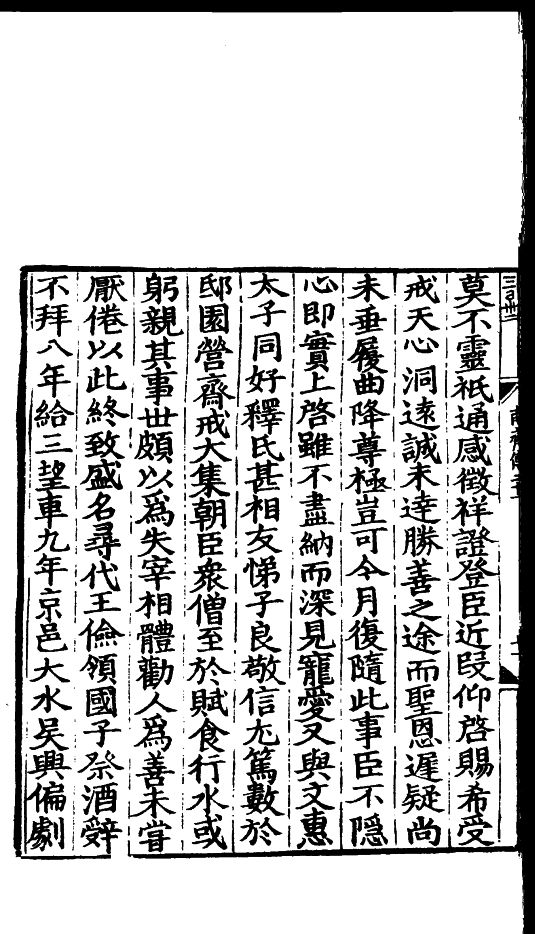 莫不靈祇通感徵祥證登臣近段仰啓賜希受
戒天心洞遠誠未逹勝善之途而聖恩遲疑尚
未垂履曲降尊極豈可今月復隨此事臣不隱
心即實上啓雖不盡納而深見寵愛又與文惠
太子同好釋氏甚相友悌子良敬信尤篤數於
邸園營齋戒大集朝臣衆僧至於賦食行水或
躬親其事世頗以爲失宰相體勸人爲善未嘗
厭倦以此終致盛名尋代王儉領國子祭酒辤
不拜八年給三望車九年京邑大水吳興偏劇